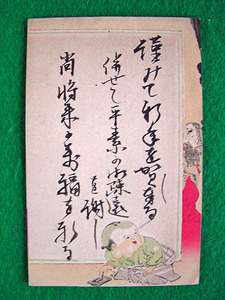 謹みて新年を賀し奉る
併せて平素の御疎遠
を謝し
尚将来の万福を祈る